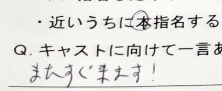 ・近いうちに本指名する
Q. キャストに向けて一言あ
またすぐ来ます！